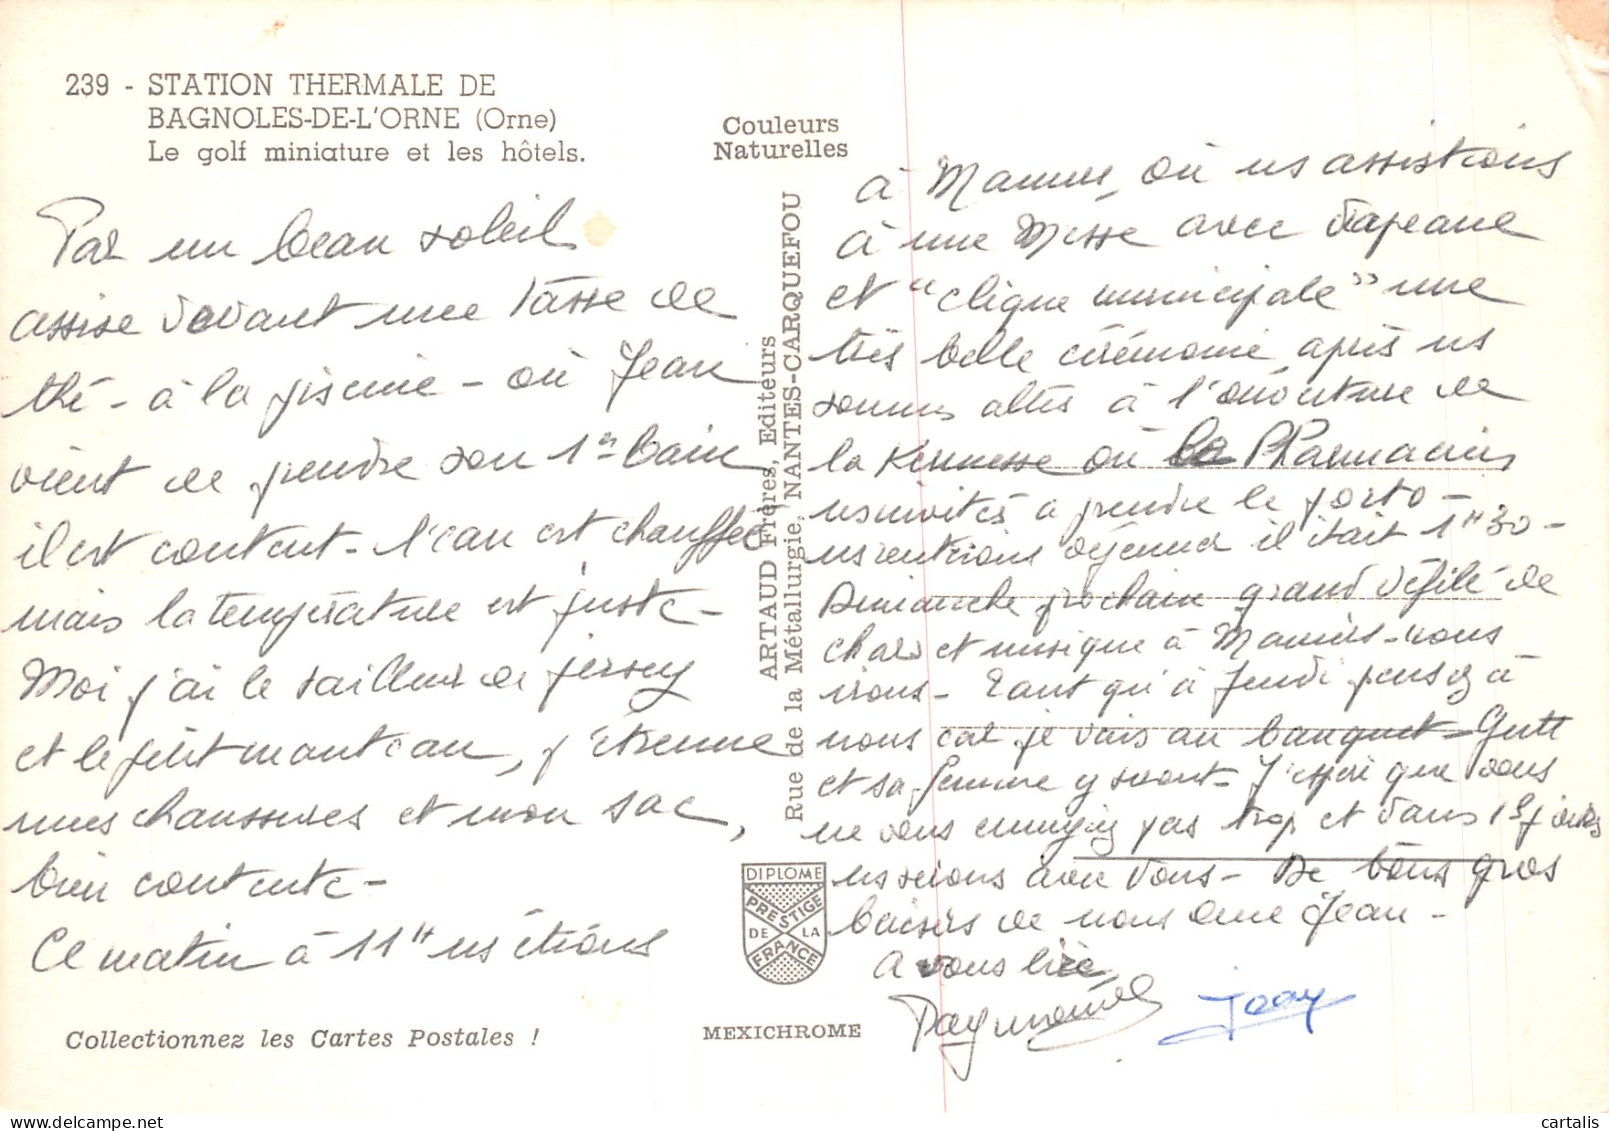 239 - STATION THERMALE DE
BAGNOLES-DE-L'ORNE (Orne)
Le golf miniature et les hôtels.
Par un beau soleil
assise devant une tasse de
thé - à la piscine - où Jean
vient de prendre son 1er bain
il est content - l'eau est chauffée
mais la température est juste -
Moi j'ai le tailleur de jersey
et le petit manteau, j'étrenne
mes chaussures et mon sac,
bien contente -
Ce matin à 11H ns étions
Collectionnez les Cartes Postales !
Couleurs
Naturelles
ARTAUD Frères, Editeurs
Rue de la Métallurgie, NANTES-CARQUEFOU
DIPLOME
PRESTIGE
DE LA
FRANCE
MEXICHROME
à où ns assistions
à une Messe avec drapeaux
et "clique municipale" une
très belle cérémonie après ns
sommes allés à l'ouverture de
la Kermesse où le Pharmacien
ns invités à prendre le porto -
ns rentrions déjeuner il était 1H30 -
Dimanche prochain grand défilé de
chars et musique à nous
irons - Tant qu'à Jeudi pensez à
nous car je vais au banquet
et sa femme y seront - J'espère que vous
ne vous ennuyez pas trop et dans 15 jours
ns serons avec vous - De bons gros
baisers de nous deux Jean -
A vous lire
Raymonde Jean
cartalis